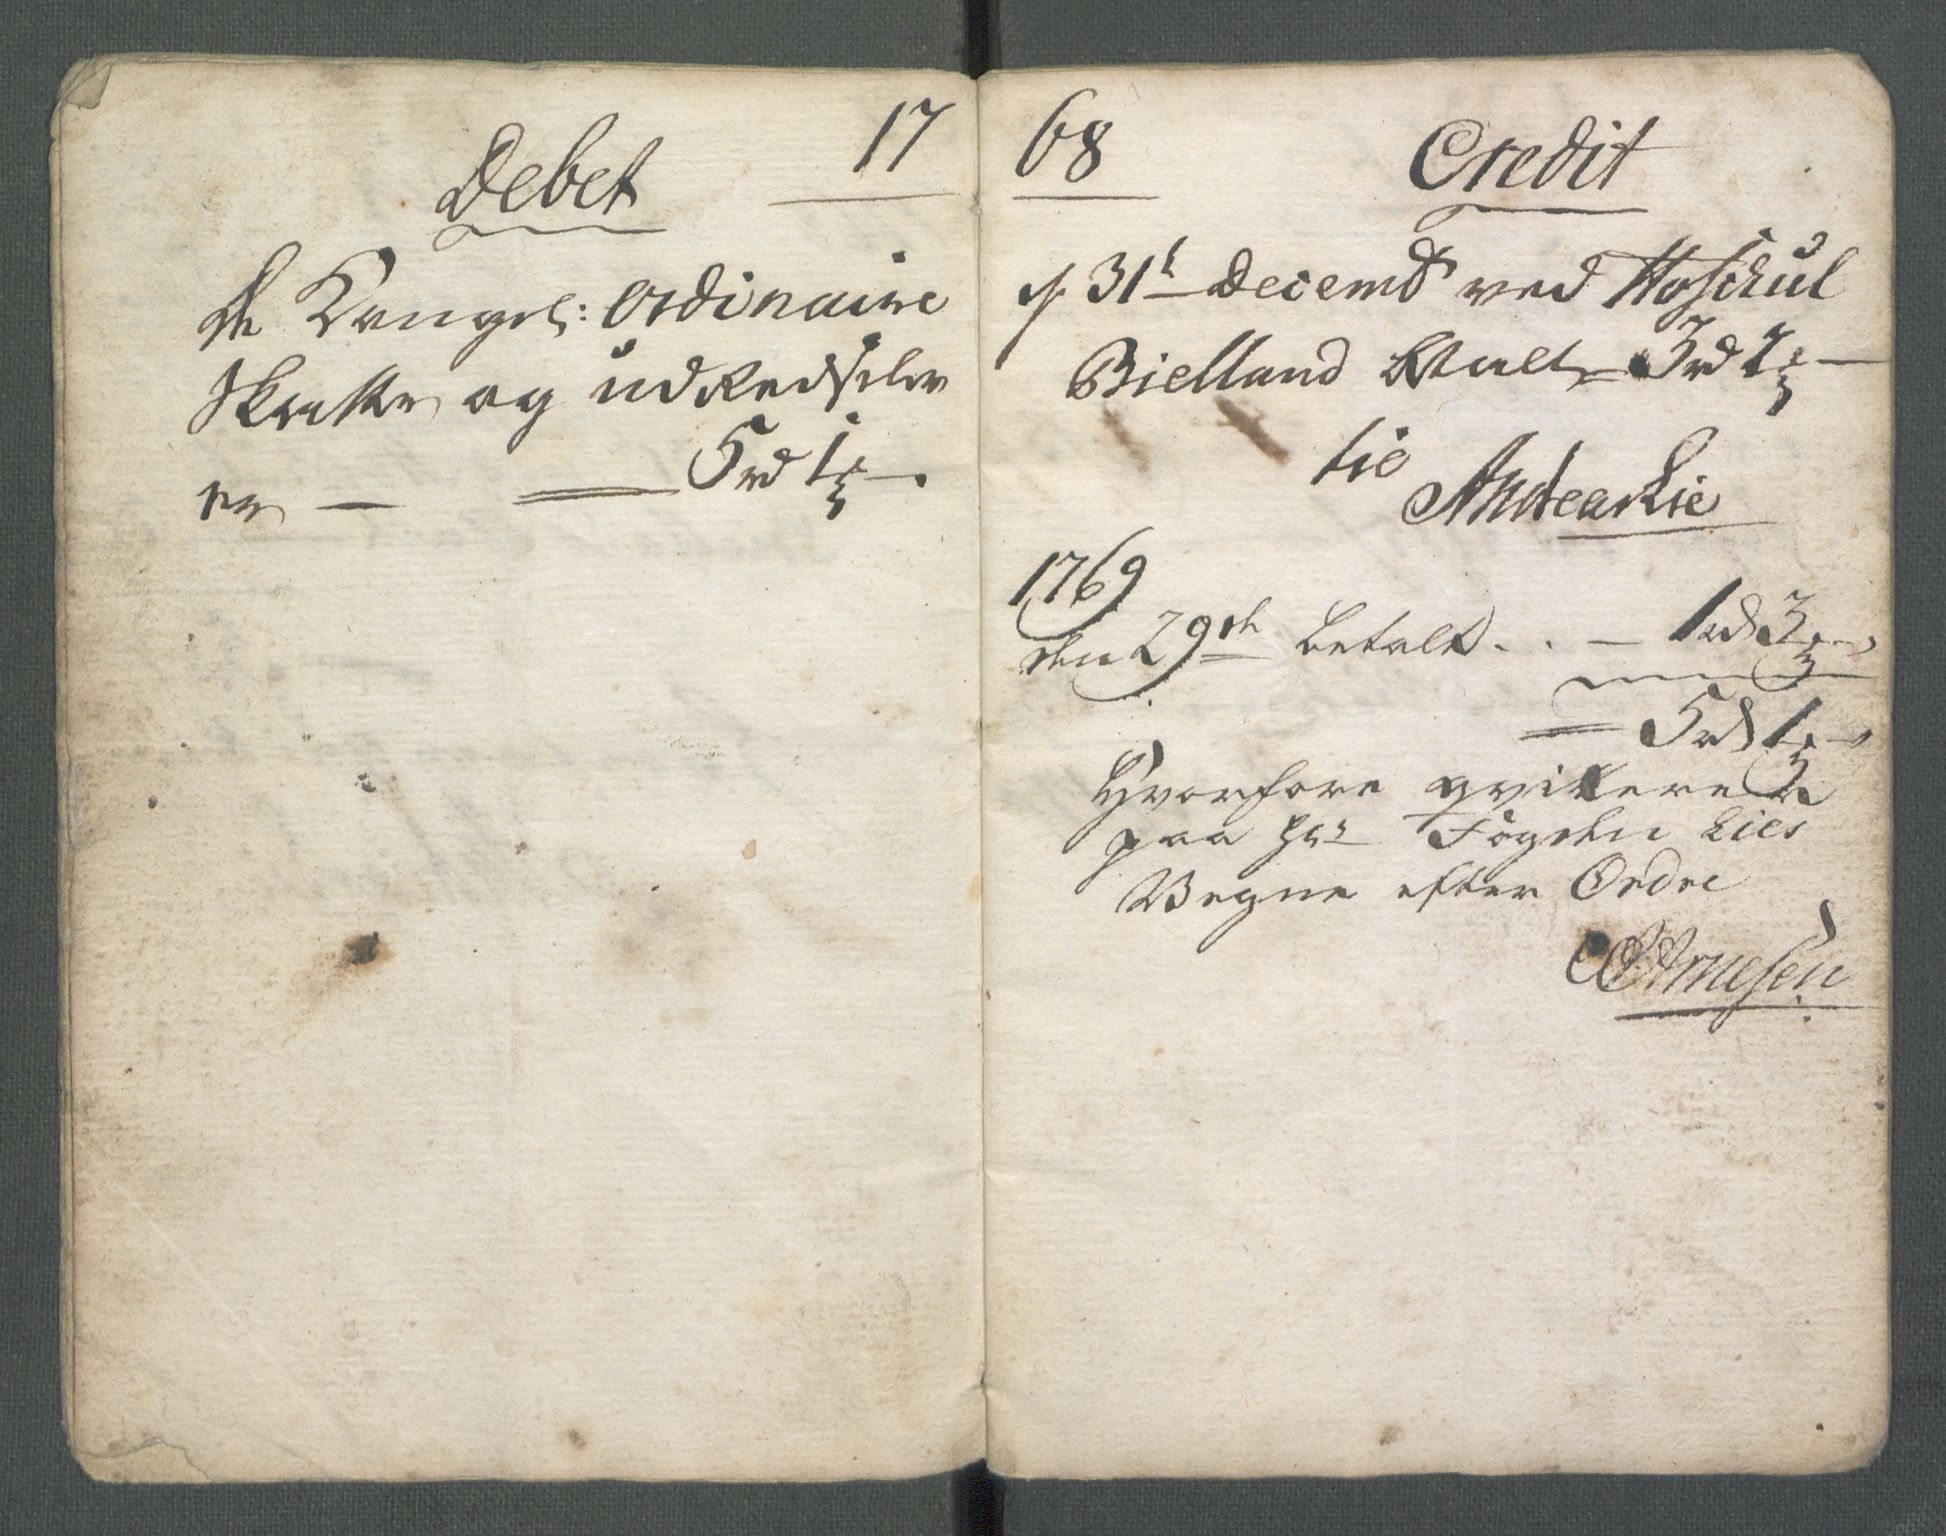 Debet 17
de Kongel: Ordinaire
Skatter og udRedsel
er 5 rd 1
68 Credit
d. 31t Decembr ved
Bielland Betalt 3 rd
Lie
AndreasLie
1769
den 29de betalt . . 1 rd 3
5 rd 1
Hvorfore qvitterer
paa Hr Fogden Lies
Vegne efter Ordre
Arnesen